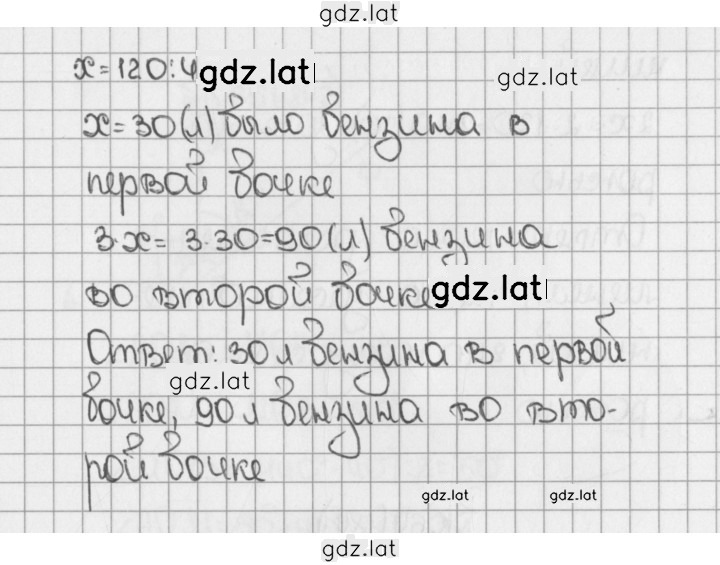 gdz.lat
x=120:4
gdz.lat
gdz.lat
x=30(л) было бензина в
первой бочке
3·x=3·30=90(л) бензина
во второй бочке
gdz.lat
Ответ: 30 л бензина в первой
gdz.lat
бочке, 90 л бензина во вто-
рой бочке
gdz.lat
gdz.lat
gdz.lat